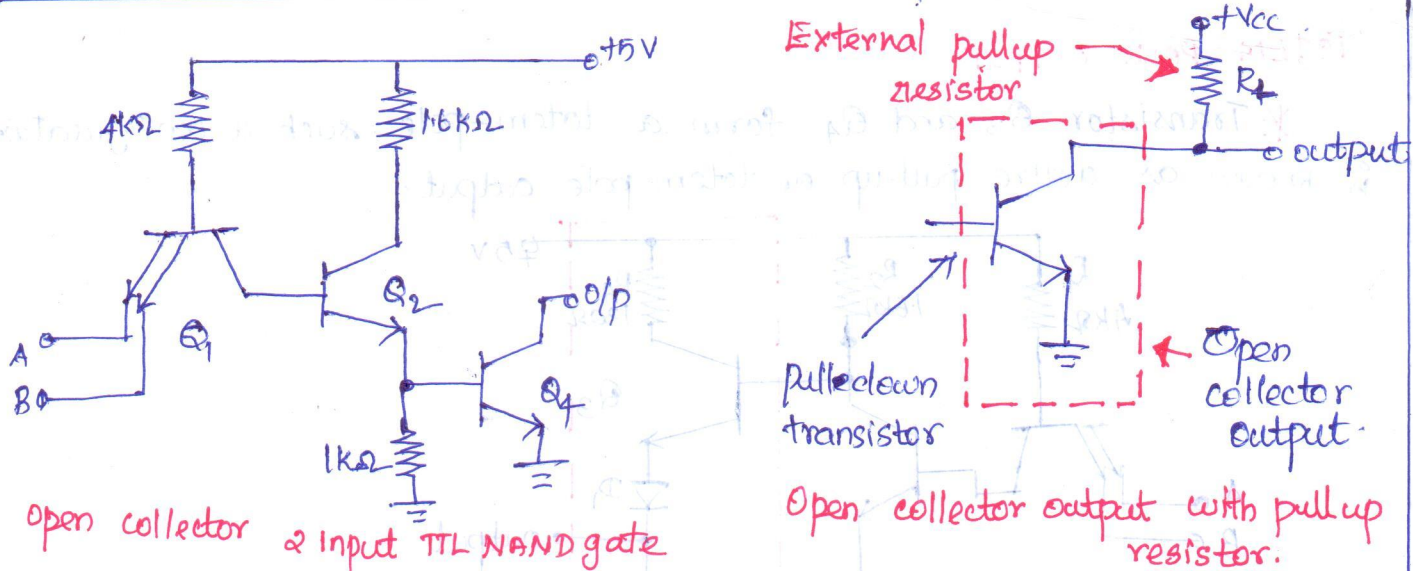 +5V
4KΩ
1.6KΩ
A
B
Q1
Q2
O/P
Q4
1KΩ
Open collector 2 input TTL NAND gate
External pullup
resistor
+Vcc
output
pulledown
transistor
Open
collector
output.
Open collector output with pull up
resistor.